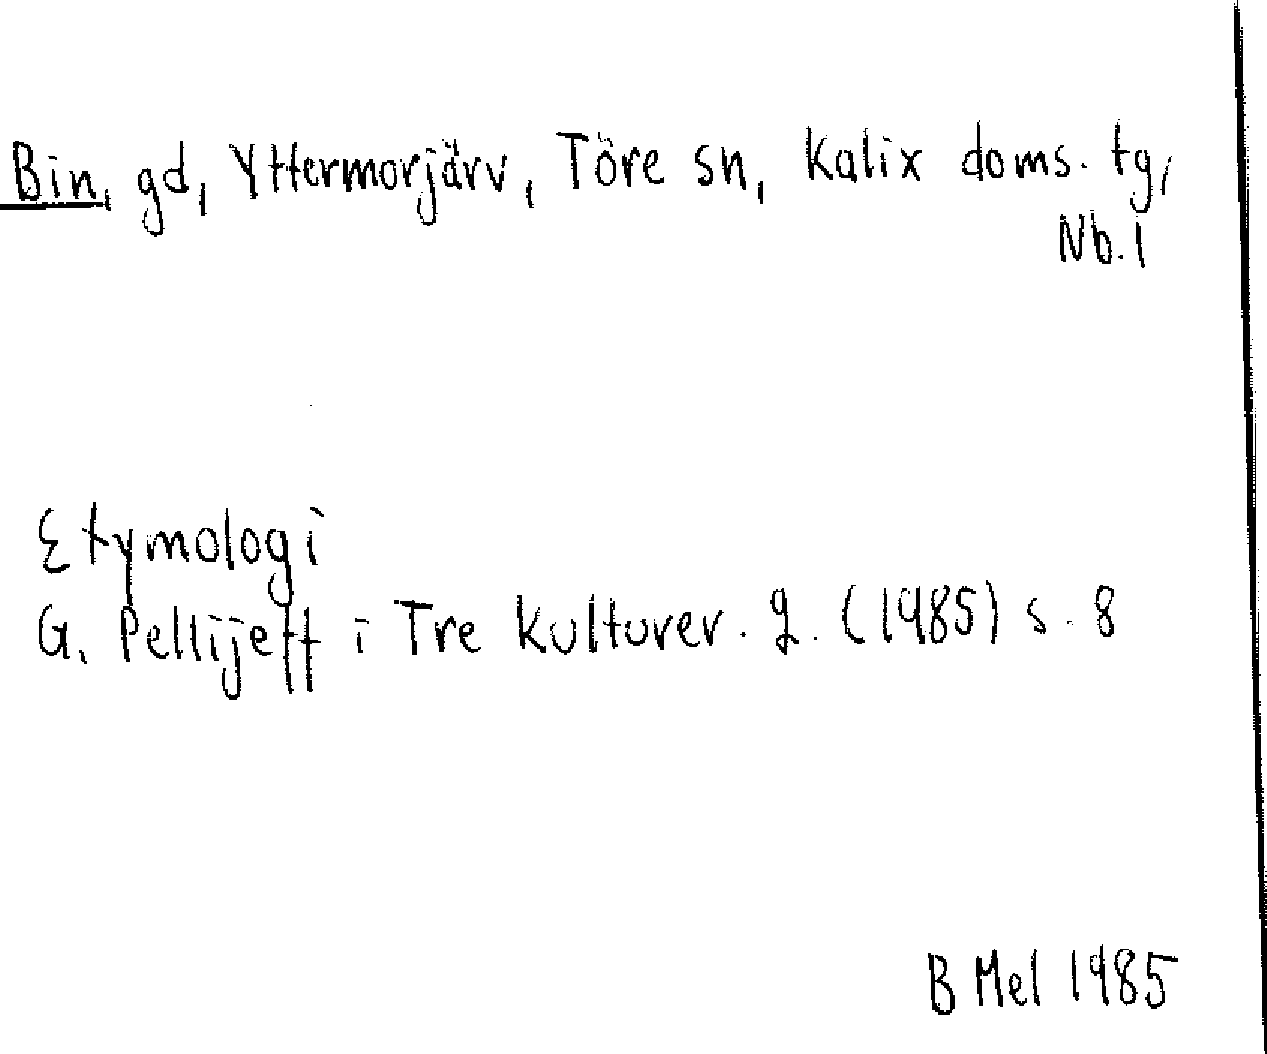 Bin, gd, Yttermorjärv, Töre sn, Kalix doms. tg,
Nb. l
Etymologi
G. Pellijeff i Tre kulturer. 2. (1985) s. 8
B Mel 1985